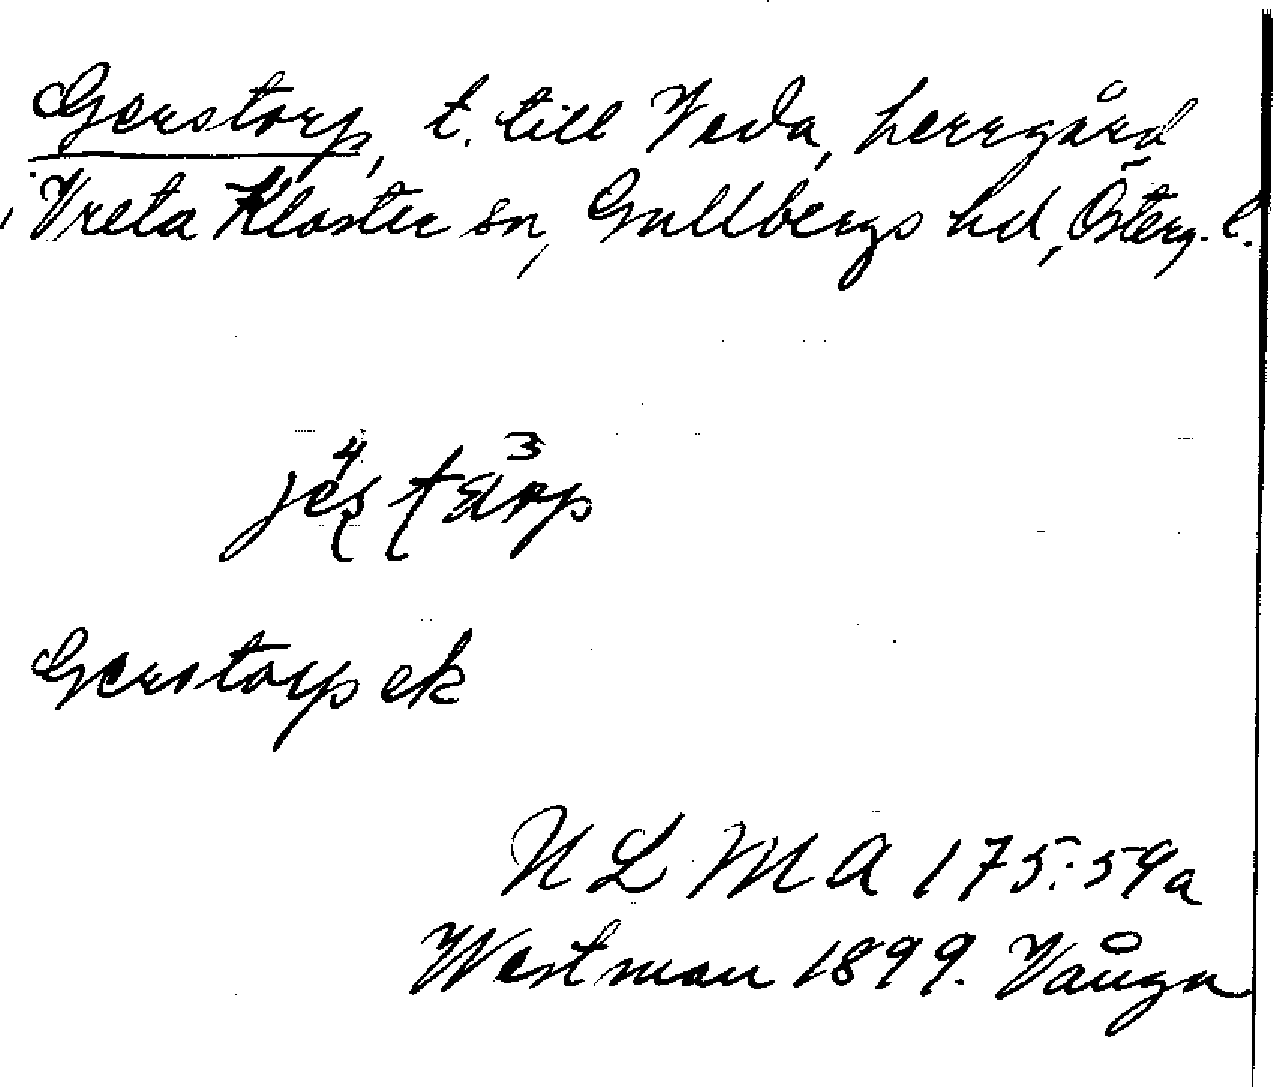 Gerstorp, t. till Veda, herrgård
i Vreta Kloster sn, Gullbergs hd, Österg. l.
Gerstorp ek
ULMA 175:59a
Westman 1899.